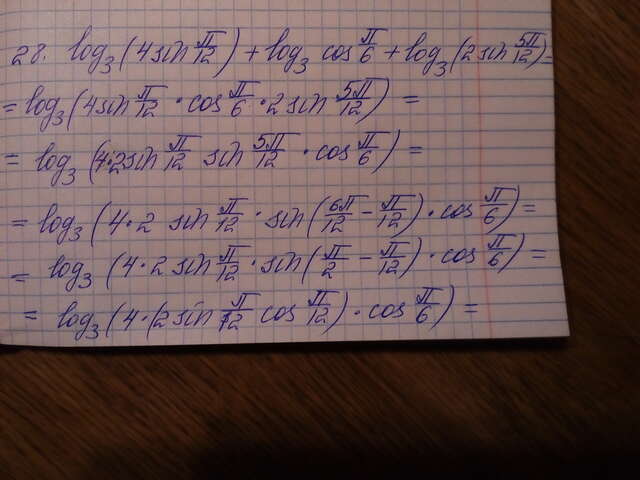 28. log₃(4sin π/12) + log₃ cos π/6 + log₃(2sin 5π/12) =
= log₃(4sin π/12 · cos π/6 · 2sin 5π/12) =
= log₃(4·2sin π/12 sin 5π/12 · cos π/6) =
= log₃(4·2 sin π/12 · sin(6π/12 − π/12) · cos π/6) =
= log₃(4·2 sin π/12 · sin(π/2 − π/12) · cos π/6) =
= log₃(4·(2sin π/12 cos π/12) · cos π/6) =